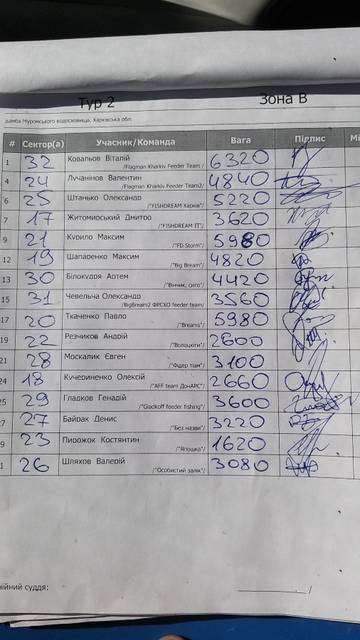 Тур 2 Зона В
дамба Муромського водосховища, Харківська обл.
# Сектор(а) Учасник/Команда Вага Підпис
1 32 Ковальов Віталій 6320
/Flagman Kharkiv Feeder Team/
4 24 Лучанінов Валентин 4840
/Flagman Kharkiv Feeder Team2/
6 25 Штанько Олександр 5220
/"FISHDREAM Харків"/
7 17 Житомирський Дмитро 3620
/"FISHDREAM IT"/
9 21 Курило Максим 5980
/"FD Storm"/
12 19 Шапаренко Максим 4820
/"Big Bream"/
13 30 Білокудря Артем 4420
15 31 Чевельча Олександр 3560
/BigBream2 ФРСХО feeder team/
17 20 Ткаченко Павло 5980
/"Breams"/
19 22 Резчиков Андрій 2600
/"Волоцюги"/
21 28 Москалик Євген 3100
/"Фідер там"/
24 18 Кучериненко Олексій 2660
/"AFF team ДонАРС"/
25 29 Гладков Генадій 3600
/"Gladkoff feeder fishing"/
27 27 Байрак Денис 3220
/"Без назви"/
9 23 Пирожок Костянтин 1620
/"Япошка"/
1 26 Шляхов Валерій 3080
/"Особистий залік"/
ійний суддя: /